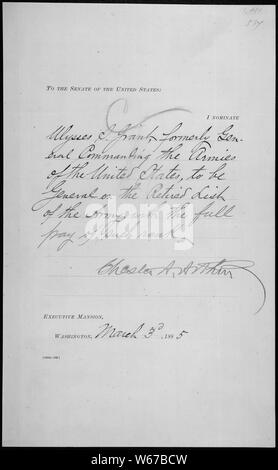 To the Senate of the United States:
I nominate
Ulysses S. Grant, formerly Gen-
eral Commanding the Armies
of the United States, to be
General on the Retired List
of the Army with the full
pay of such rank.
Chester A. Arthur
Executive Mansion,
Washington, March 3d 1885
alamy
Image ID: W67BCW
www.alamy.com